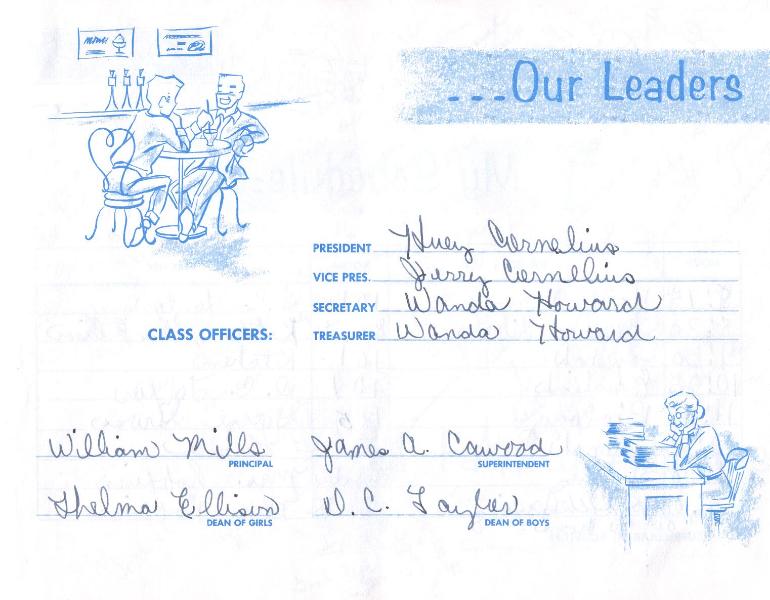 MENU
...Our Leaders
PRESIDENT Huey Cornelius
VICE PRES. Jerry Cornelius
SECRETARY Wanda Howard
CLASS OFFICERS: TREASURER Wanda Howard
William Mills James A. Cawood
PRINCIPAL SUPERINTENDENT
Thelma Ellison D. C. Taylor
DEAN OF GIRLS DEAN OF BOYS